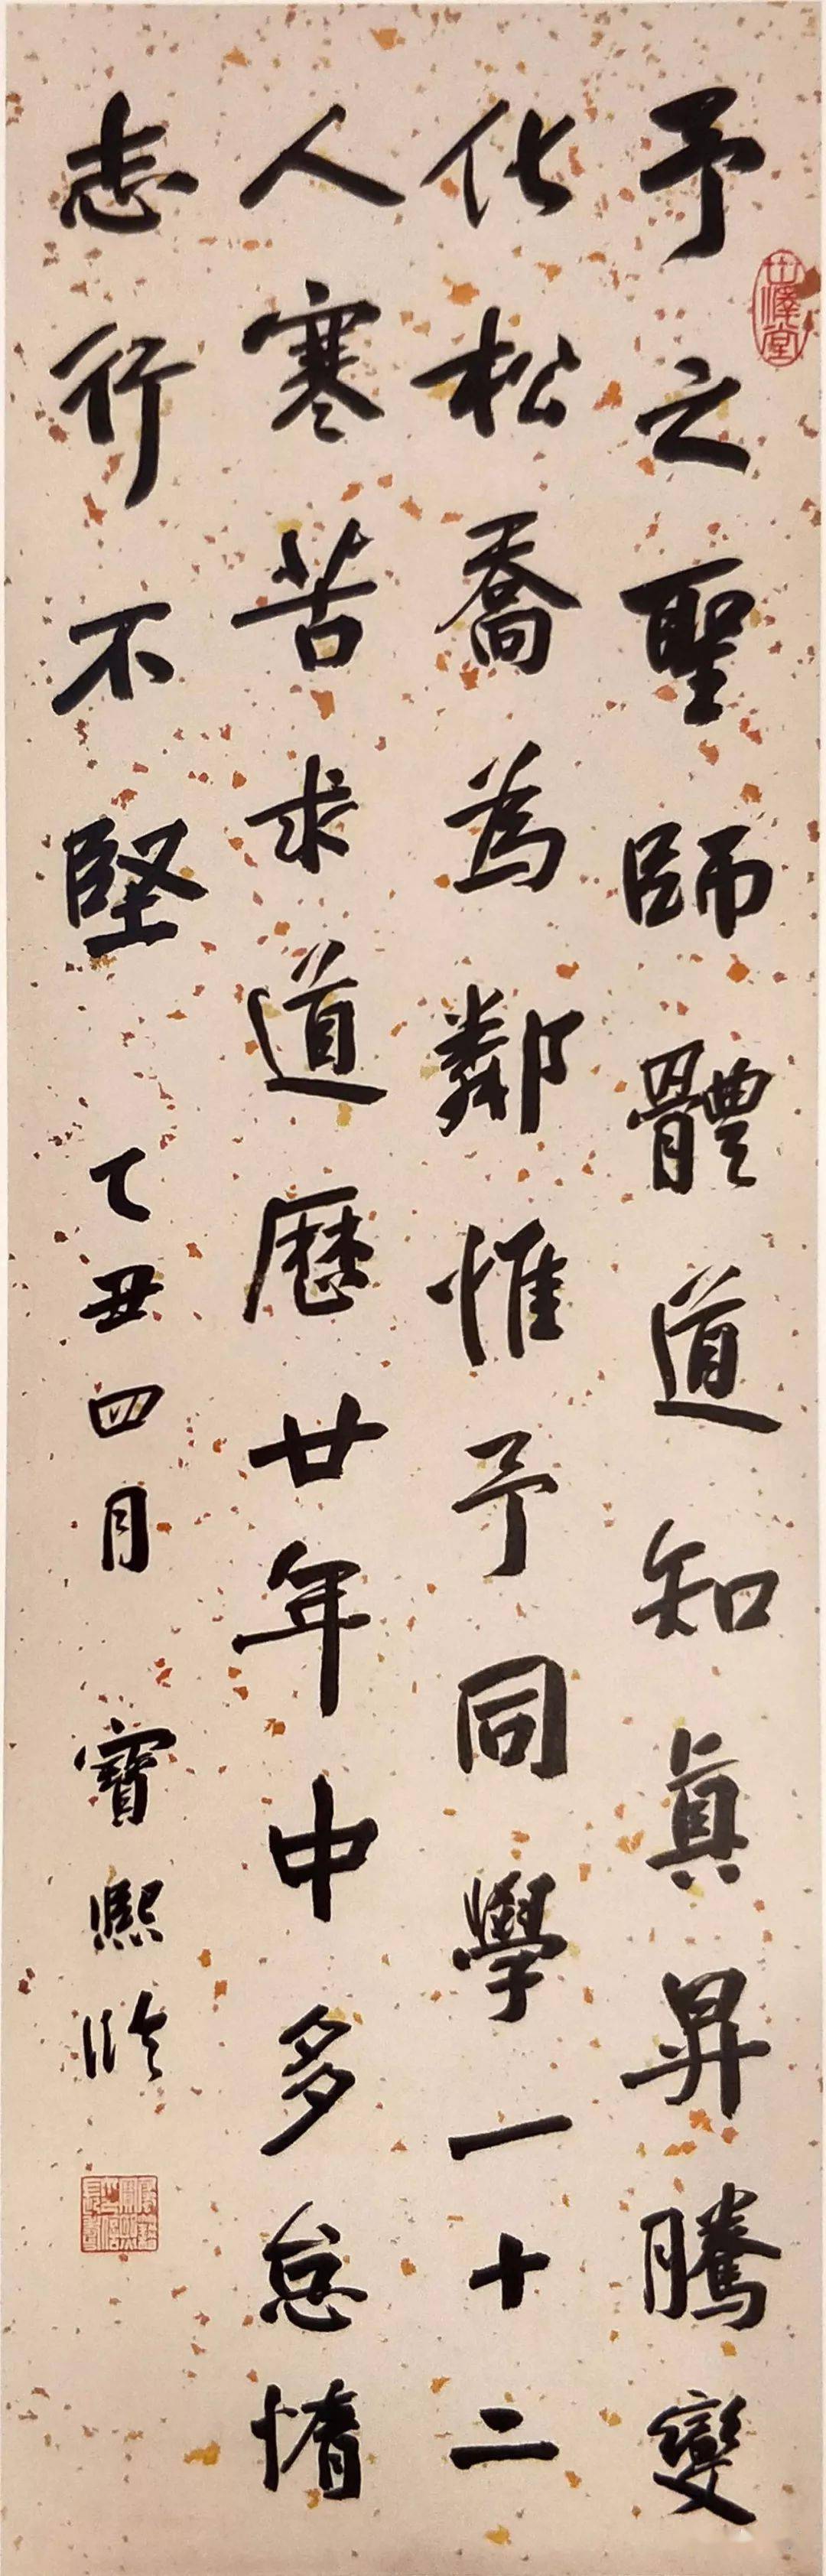 予之聖師體道知真昇騰變
化松喬為鄰惟予同學一十二
人寒苦求道歷廿年中多怠惰
志行不堅 乙丑四月 寶熙臨
世澤堂